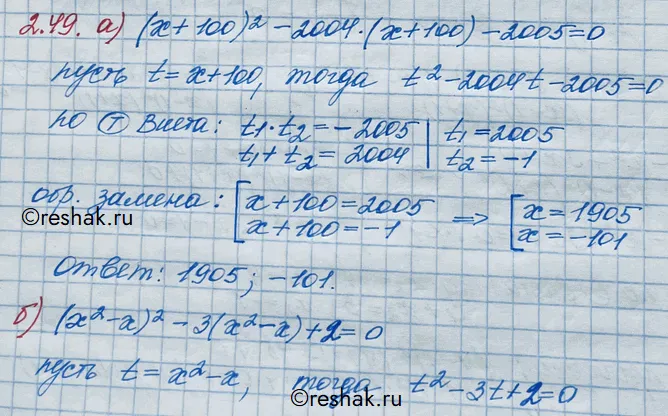 2.49. а) (x+100)² -2004·(x+100) -2005=0
пусть t=x+100, тогда t²-2004t-2005=0
по Т Виета: t1·t2=-2005 | t1=2005
t1+t2=2004 | t2=-1
обр. замена: [x+100=2005 => [x=1905
x+100=-1 x=-101
©reshak.ru ©reshak.ru
Ответ: 1905; -101.
б) (x²-x)² -3(x²-x)+2=0
пусть t=x²-x, тогда t²-3t+2=0
©reshak.ru ©reshak.ru